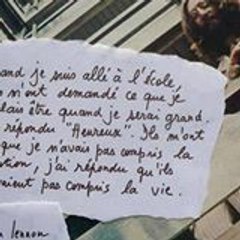 and je suis allé à l'école,
m'ont demandé ce que je
lais être quand je serai grand.
répondu "Heureux". Ils m'ont
que je n'avais pas compris la
stion, j'ai répondu qu'ils
vaient pas compris la vie.
n lennon